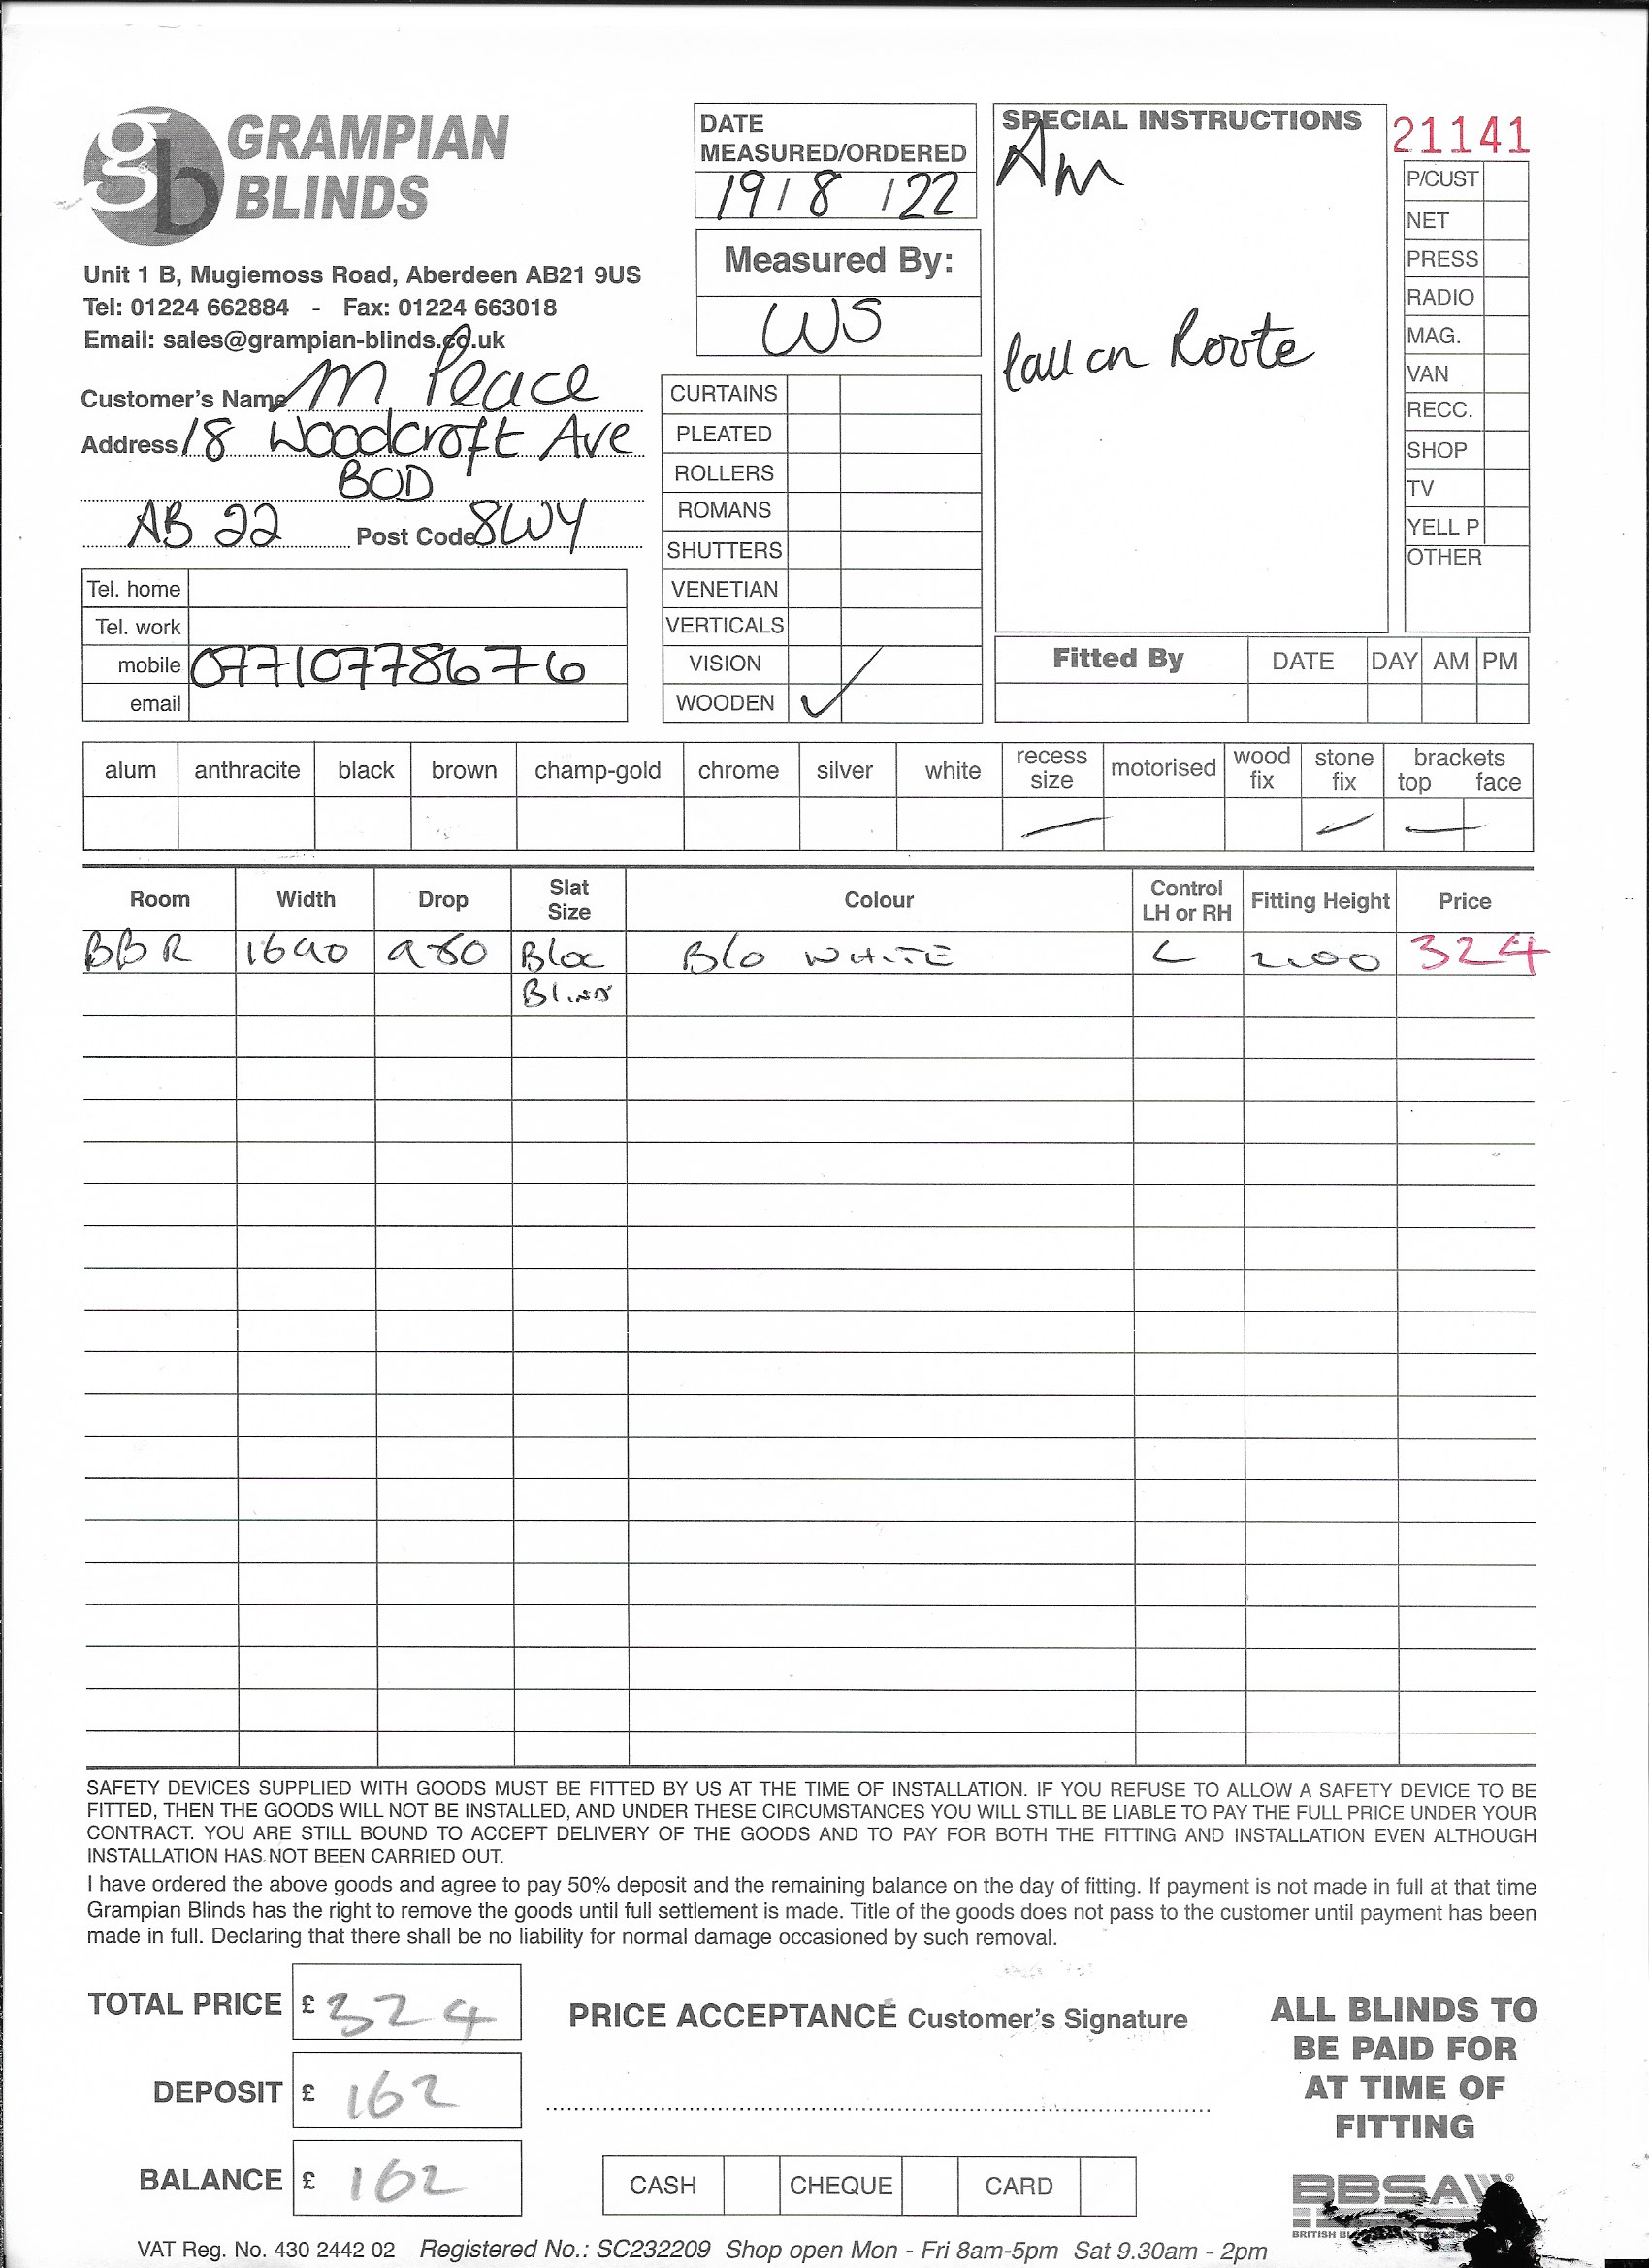 GRAMPIAN
BLINDS
Unit 1 B, Mugiemoss Road, Aberdeen AB21 9US
Tel: 01224 662884 - Fax: 01224 663018
Email: sales@grampian-blinds.co.uk
Customer's Name M Peace
Address 18 Woodcroft Ave
BOD
AB 22 Post Code 8WY
Tel. home
Tel. work
mobile 07710778676
email
DATE
MEASURED/ORDERED
19/8/22
Measured By:
WS
CURTAINS
PLEATED
ROLLERS
ROMANS
SHUTTERS
VENETIAN
VERTICALS
VISION
WOODEN ✓
SPECIAL INSTRUCTIONS
Am
Call on Route
21141
P/CUST
NET
PRESS
RADIO
MAG.
VAN
RECC.
SHOP
TV
YELL P
OTHER
Fitted By DATE DAY AM PM
alum anthracite black brown champ-gold chrome silver white recess size motorised wood fix stone fix brackets top face
Room Width Drop Slat Size Colour Control LH or RH Fitting Height Price
BBR 1690 980 Bloc Blo WHITE L 2.00 324
Blind
SAFETY DEVICES SUPPLIED WITH GOODS MUST BE FITTED BY US AT THE TIME OF INSTALLATION. IF YOU REFUSE TO ALLOW A SAFETY DEVICE TO BE
FITTED, THEN THE GOODS WILL NOT BE INSTALLED, AND UNDER THESE CIRCUMSTANCES YOU WILL STILL BE LIABLE TO PAY THE FULL PRICE UNDER YOUR
CONTRACT. YOU ARE STILL BOUND TO ACCEPT DELIVERY OF THE GOODS AND TO PAY FOR BOTH THE FITTING AND INSTALLATION EVEN ALTHOUGH
INSTALLATION HAS NOT BEEN CARRIED OUT.
I have ordered the above goods and agree to pay 50% deposit and the remaining balance on the day of fitting. If payment is not made in full at that time
Grampian Blinds has the right to remove the goods until full settlement is made. Title of the goods does not pass to the customer until payment has been
made in full. Declaring that there shall be no liability for normal damage occasioned by such removal.
TOTAL PRICE £ 324
DEPOSIT £ 162
BALANCE £ 162
PRICE ACCEPTANCE Customer's Signature
CASH CHEQUE CARD
ALL BLINDS TO
BE PAID FOR
AT TIME OF
FITTING
BBSA
BRITISH
VAT Reg. No. 430 2442 02 Registered No.: SC232209 Shop open Mon - Fri 8am-5pm Sat 9.30am - 2pm